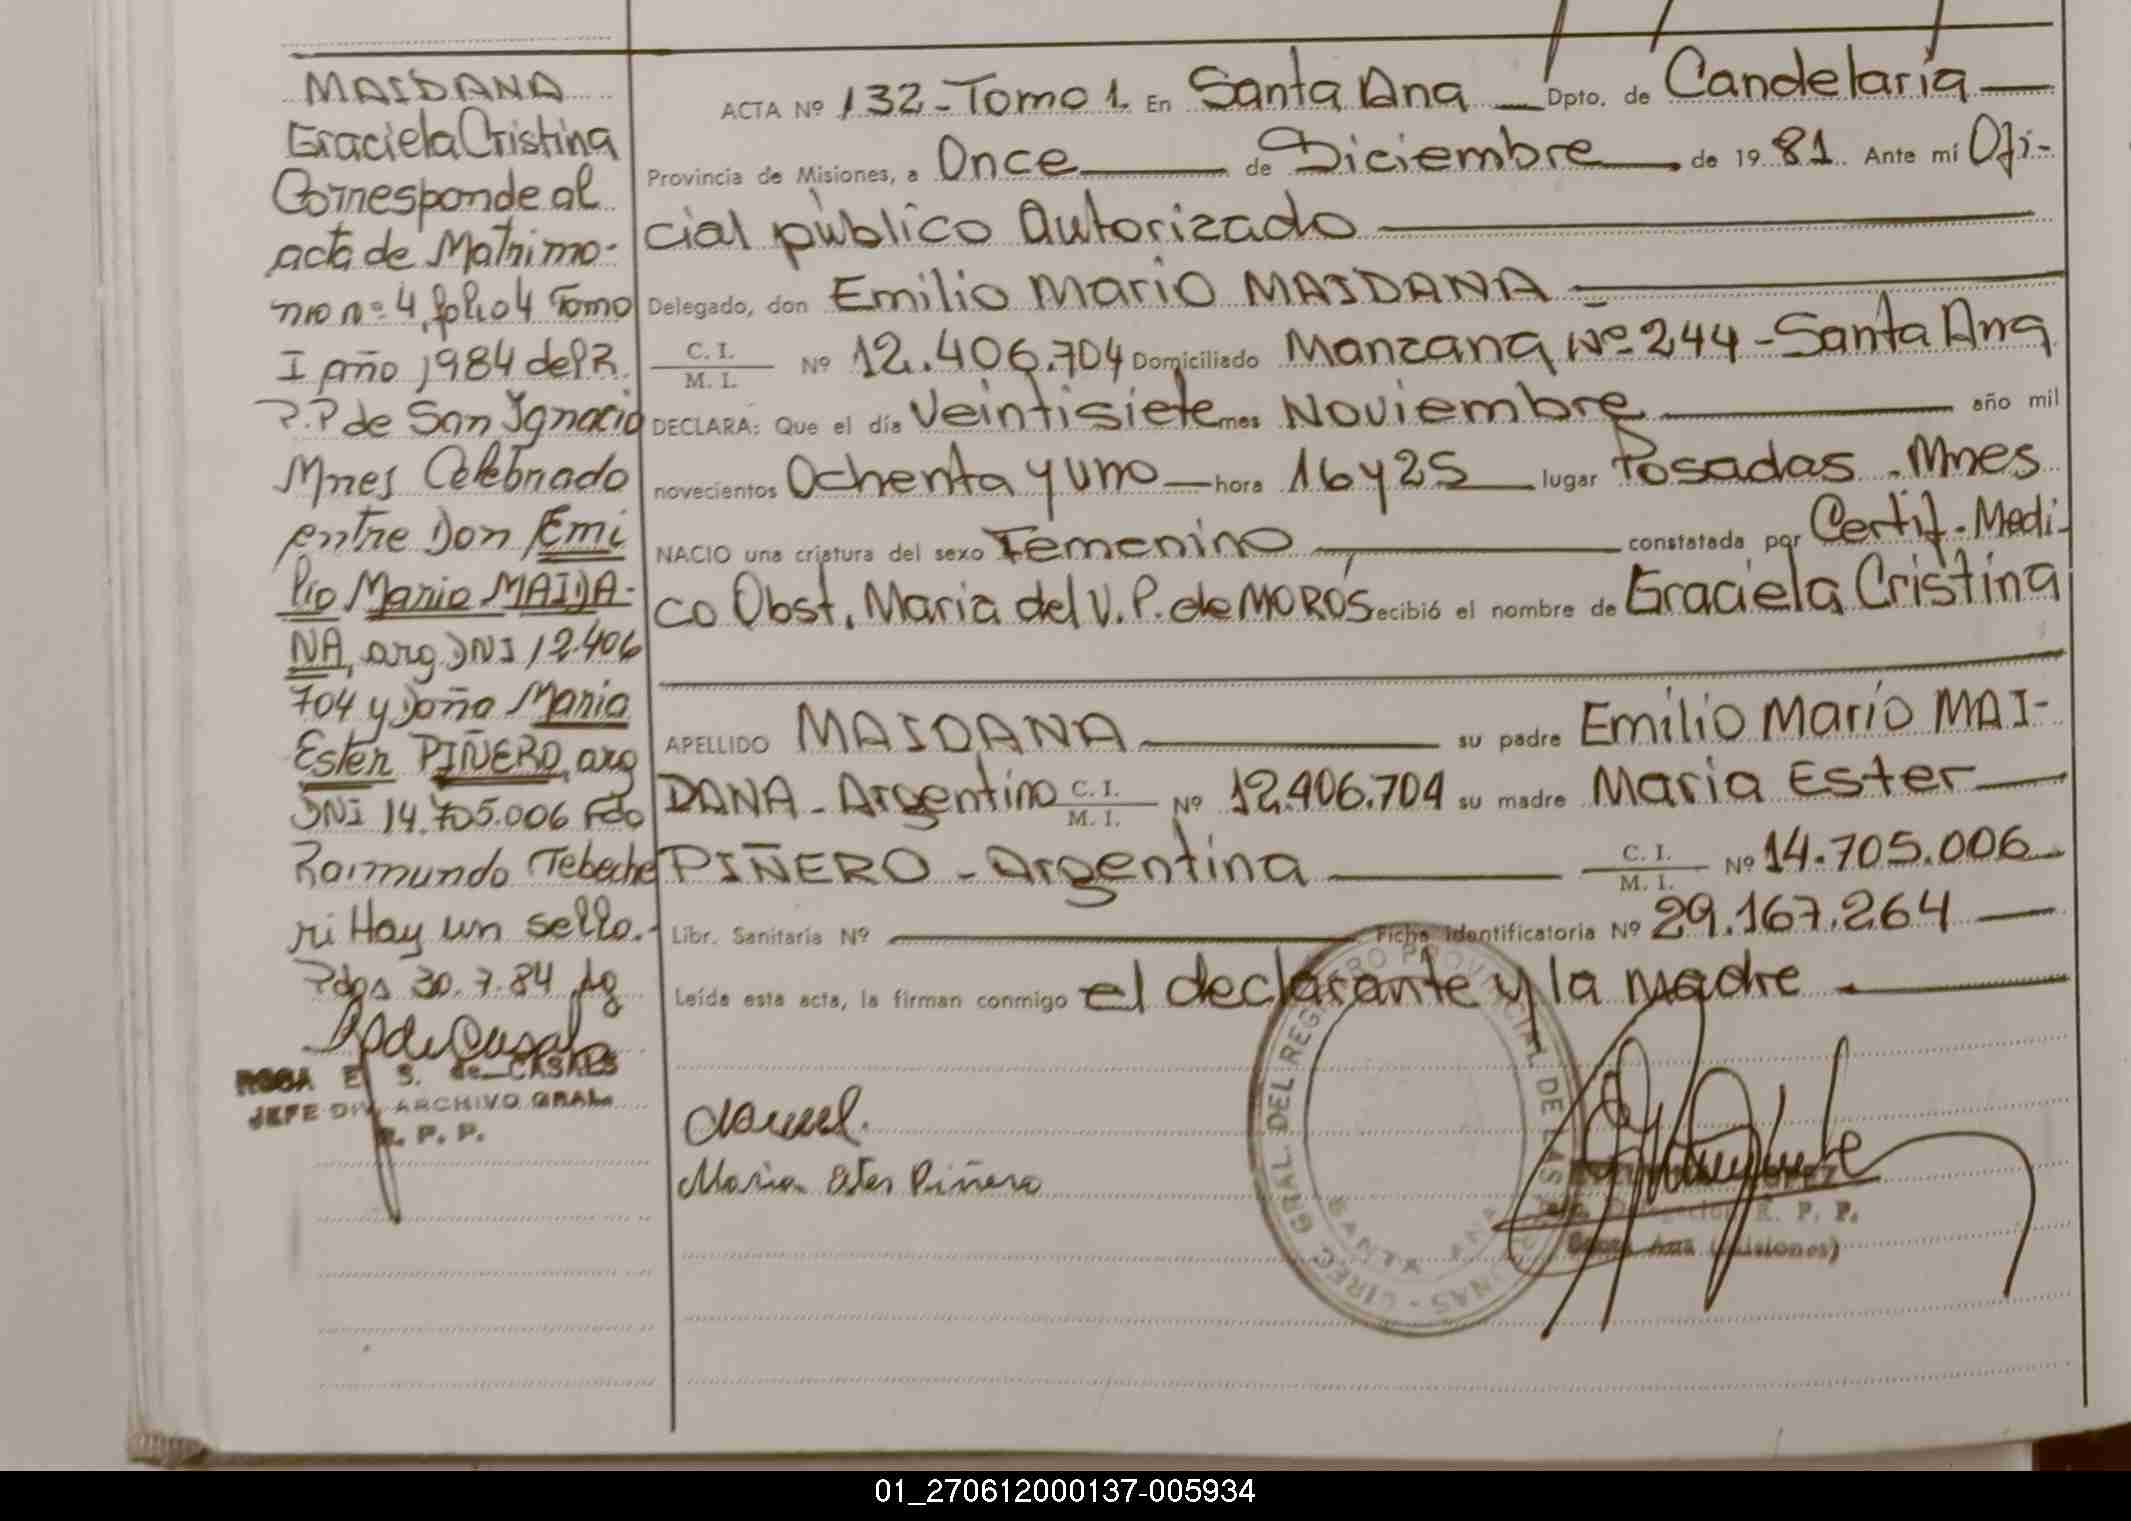 MAIDANA
Graciela Cristina
Corresponde al
acta de Matrimo-
nio nº 4, folio 4 Tomo
I año 1984 del R.
P.P de San Ignacio
Mnes Celebrado
entre Don Emi
lio Mario MAIDA-
NA, arg DNI 12.406
704 y Doña Maria
Ester PIÑERO, arg
DNI 14.705.006 Fdo
Raimundo Tebeche
ri Hay un sello.-
Pdas 30.7.84
ROSA E. S. de CASALS
JEFE DIV. ARCHIVO GRAL.
R. P. P.
ACTA Nº 132-Tomo 1. En Santa Ana Dpto. de Candelaria
Provincia de Misiones, a Once de Diciembre de 1981. Ante mí Ofi-
cial público Autorizado
Delegado, don Emilio Mario MAIDANA
C. I. / M. I. Nº 12.406.704 Domiciliado Manzana Nº 244-Santa Ana
DECLARA: Que el día Veintisiete mes Noviembre año mil
novecientos Ochenta y uno hora 16 y 25 lugar Posadas.Mnes
NACIO una criatura del sexo Femenino constatada por Certif. Medi-
co Obst. Maria del V. P. de MOROS recibió el nombre de Graciela Cristina
APELLIDO MAIDANA su padre Emilio Mario MAI-
DANA - Argentino C. I. / M. I. Nº 12.406.704 su madre Maria Ester
PIÑERO - Argentina C. I. / M. I. Nº 14.705.006
Libr. Sanitaria Nº Ficha Identificatoria Nº 29.167.264
Leída esta acta, la firman conmigo el declarante y la madre
Maria Ester Piñero
DIREC. GRAL. DEL REGISTRO PROVINCIAL DE LAS PERSONAS
SANTA ANA
Delegación R. P. P.
Santa Ana (Misiones)
01_270612000137-005934